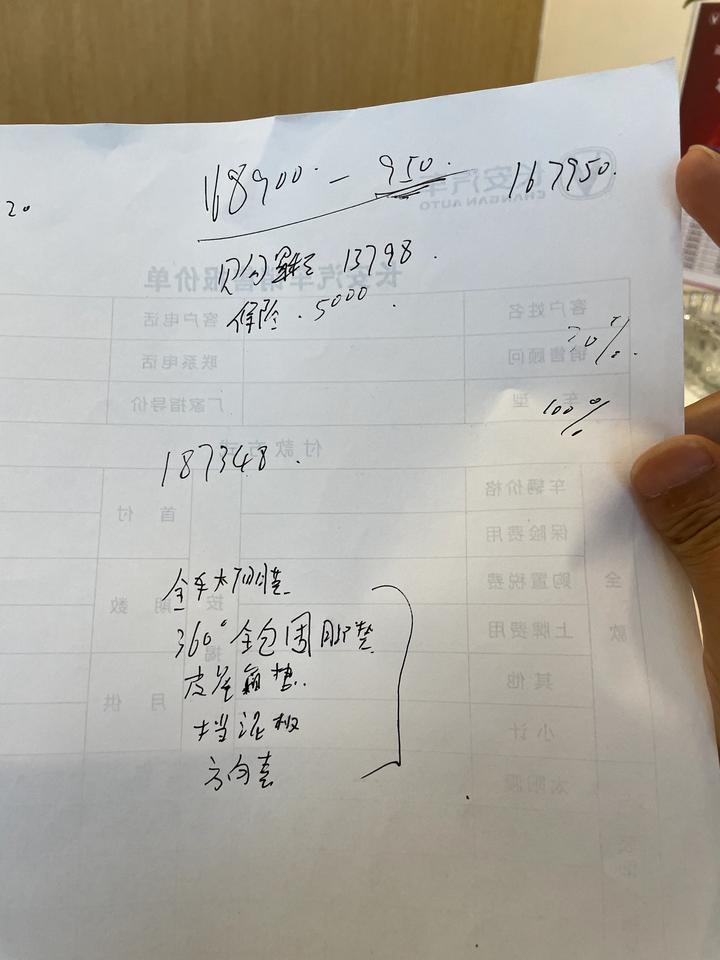 168900 - 950. 167950.
20
长安汽车
CHANGAN AUTO
购置税 13798.
长安汽车销售报价单
保险. 5000.
客户姓名 客户电话
销售顾问 联系电话
%.
车型 厂家指导价
100%
付款方式
187348.
车辆价格
首付
保险费用
全款 购置税费 按揭 期数
全车太阳膜
上牌费用
360°全包围脚垫
其他 月供
皮革箱垫.
小计
挡泥板
太阳膜
方向套